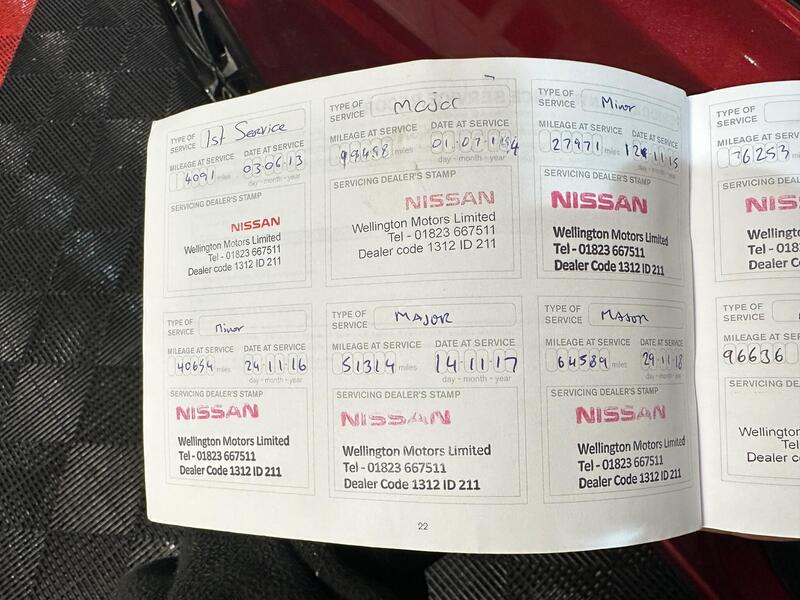 TYPE OF SERVICE 1st Service
MILEAGE AT SERVICE DATE AT SERVICE
4091 miles 03·06·13
day - month - year
SERVICING DEALER'S STAMP
NISSAN
Wellington Motors Limited
Tel - 01823 667511
Dealer code 1312 ID 211
TYPE OF SERVICE Major
MILEAGE AT SERVICE DATE AT SERVICE
miles
day - month - year
SERVICING DEALER'S STAMP
NISSAN
Wellington Motors Limited
Tel - 01823 667511
Dealer code 1312 ID 211
TYPE OF SERVICE Minor
MILEAGE AT SERVICE DATE AT SERVICE
27971 miles
day - month - year
SERVICING DEALER'S STAMP
NISSAN
Wellington Motors Limited
Tel - 01823 667511
Dealer Code 1312 ID 211
TYPE OF SERVICE
MILEAGE AT SERVICE
36253 miles
SERVICING DEALER'S STAMP
NIS
Wellington
Tel - 01
Dealer C
TYPE OF SERVICE Minor
MILEAGE AT SERVICE DATE AT SERVICE
40654 miles 24·11·16
day - month - year
SERVICING DEALER'S STAMP
NISSAN
Wellington Motors Limited
Tel - 01823 667511
Dealer Code 1312 ID 211
TYPE OF SERVICE MAJOR
MILEAGE AT SERVICE DATE AT SERVICE
51314 miles 14·11·17
day - month - year
SERVICING DEALER'S STAMP
NISSAN
Wellington Motors Limited
Tel - 01823 667511
Dealer Code 1312 ID 211
TYPE OF SERVICE MAJOR
MILEAGE AT SERVICE DATE AT SERVICE
64589 miles 29·11·18
day - month - year
SERVICING DEALER'S STAMP
NISSAN
Wellington Motors Limited
Tel - 01823 667511
Dealer Code 1312 ID 211
TYPE OF SERVICE
MILEAGE AT SERVICE
96636
SERVICING DE
Wellingto
Tel
Dealer c
22